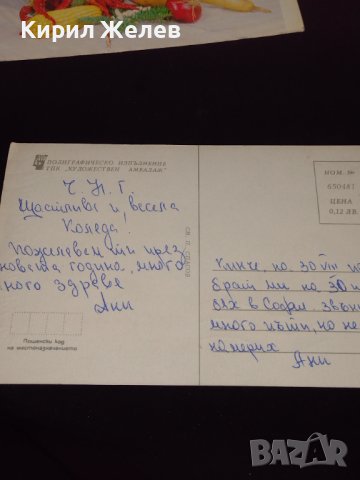 Кирил Желев
ПОЛИГРАФИЧЕСКО ИЗПЪЛНЕНИЕ
ГПК „ХУДОЖЕСТВЕН АМБАЛАЖ"
Ч. Н. Г.
Щастлива и весела
Коледа.
Пожелавам ти през
новата година, много
много здраве
Ани
Пощенски код
на местоназначението
НОМ. №
650487
ЦЕНА
0,12 ЛВ.
на 30
ми на 30
бях в София. звъни
много пъти, но не
намерих
Ани
BAZAR